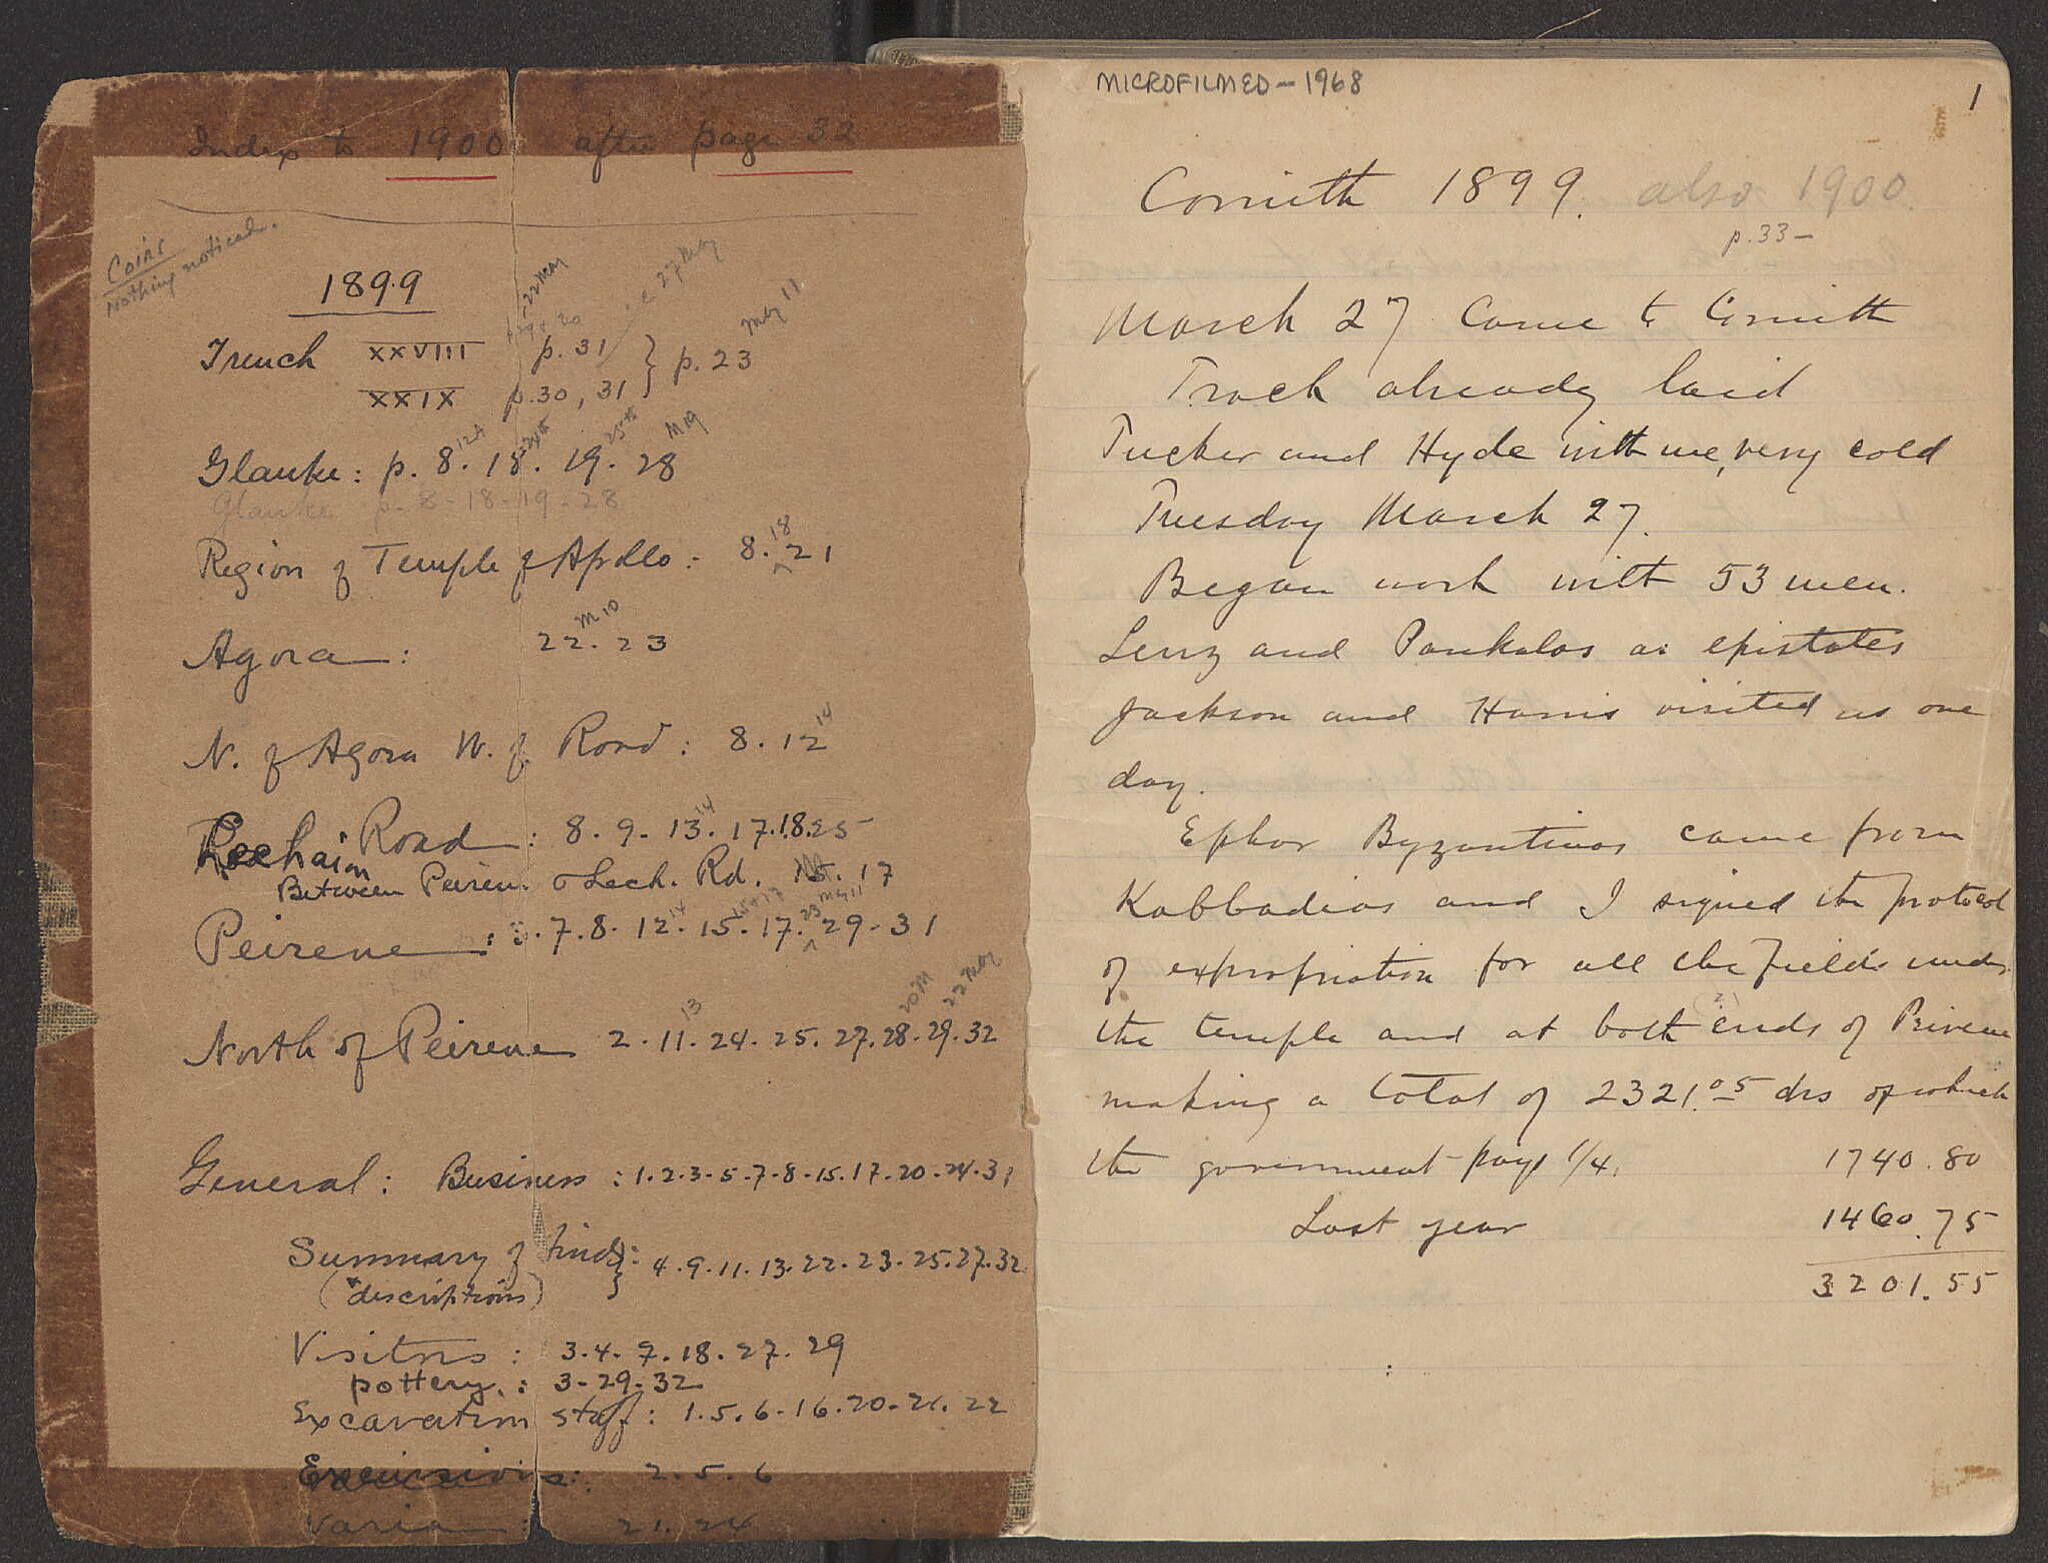 Index to 1900 after page 32
Coins
Nothing noticed.
1899
22 May
i.e. 27 May
May 11
Trench XXVIII p. 31 } p. 23
XXIX p. 30, 31
Glauke: p. 8. 18. 19. 28
Glauke p. 8-18-19-28
Region of Temple of Apollo: 8. 18 21
M 10
Agora: 22. 23
N. of Agora W. of Road: 8. 12 14
Lechaion Road: 8. 9. 13. 14 17. 18. 25
Between Peirene & Lech. Rd. 15. 17
Peirene: 7. 8. 12. 15. 17. 23 29. 31
20 M
22 May
North of Peirene 2. 11. 13 24. 25. 27. 28. 29. 32
General: Business: 1. 2. 3. 5. 7. 8. 15. 17. 20. 24. 31
Summary of finds: } 4. 9. 11. 13. 22. 23. 25. 27. 32
(descriptions)
Visitors: 3. 4. 7. 18. 27. 29
pottery: 3. 29. 32
Excavation staff: 1. 5. 6. 16. 20. 21. 22
Excursions: 2. 5. 6
Varia: 21. 24
MICROFILMED - 1968
1
Corinth 1899. also 1900.
p. 33 -
March 27 Came to Corinth
Track already laid
Tucker and Hyde with me, very cold
Tuesday March 27.
Began work with 53 men.
Lenz and Pankalos as epistates
Jackson and Harris visited us one
day.
Ephor Byzantinos came from
Kabbadias and I signed the protocol
of expropriation for all the fields under
the temple and at both (2) ends of Pirene
making a total of 2321.05 drs of which
the government pays 1/4. 1740.80
Last year 1460.75
3201.55